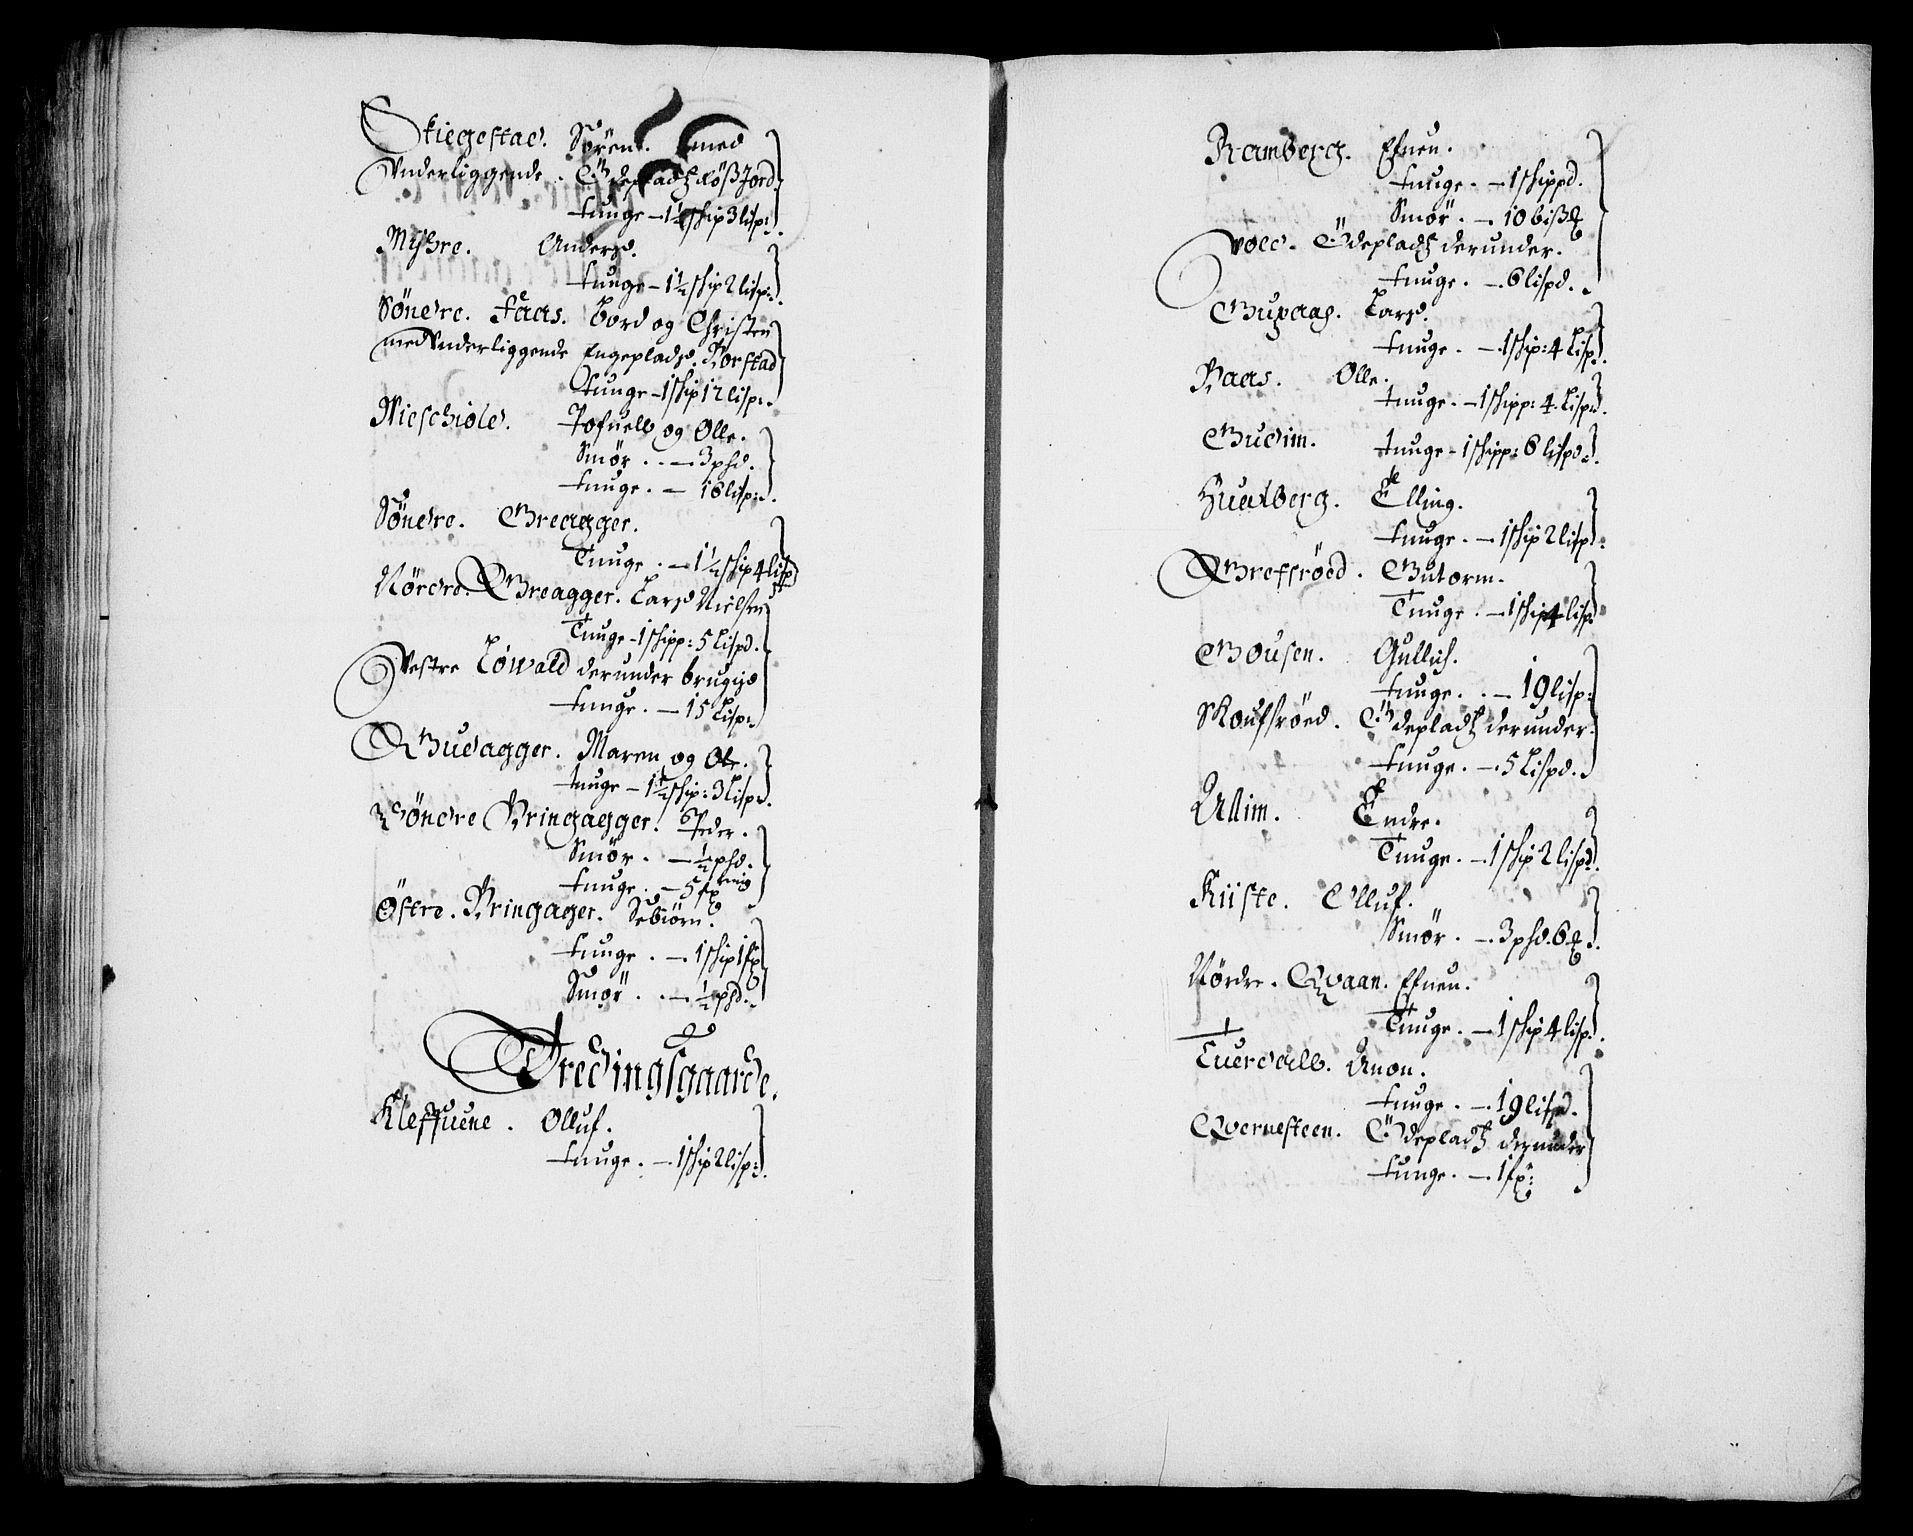 Skiegestad. Sören. med
Vnderliggende. Ödepladtz Røsß Jord
tunge – 1½ schip 3 lisp:
Myhre. Anders.
tunge – 1½ schip 2 lisp:
Söndre. Faas. Bord og Christen
med Vnderliggende Engeplads. Borstad
tunge – 1 schip 12 lisp:
Mieschiold. Tofuell og Olle.
Smör. – 3 phd.
tunge. – 16 lisp:
Söndre. Breagger.
Tunge. – 1½ schip 4 lisp
Nördre. Breagger. Lars Nielsen
Tunge – 1 schipp: 5 Lispd.
Vestre Löwald derunder brugis
tunge. – 15 Lisp:
Budagger. Maren og Ole.
tunge – 1½ schip: 3 Lisp
Söndre Bringagger. Peder.
Smör. – ½ phd.
tunge. – 5 fx
Östre. Bringager. Sebiörn.
tunge. – 1 schip 1 fx
Smör. – ½ phd.
Ödredingsgaarde.
Kleffuene. Olluf.
tunge. – 1 schip 2 lisp:
Ramberg. Efuen.
tunge. – 1 schippd.
Smör. – 10 bisß
Vold. Ödepladtz derunder.
tunge. – 6 lispd.
Gupaag. Lars.
tunge. – 1 schip: 4 Lisp
Baas. Olle.
tunge. – 1 schipp: 4. Lisp
Gudim. tunge – 1 schipp: 6 lispd
Hualberg. Elling.
tunge. – 1 schip 2 lisp
Brefsröed. Gutorm.
Tunge. – 1 schip 4 lisp
Gousen. Gullich.
tunge. – 19 lisp:
Skoufsröed. Ödepladtz derunder.
tunge. – 5 Lispd.
Ullim. Endre.
Tunge. – 1 schip 2 lispd
Kiiste. Olluf.
Smör. – 3 phd. 6
Nördre. Qvaan. Efuen.
Tunge. – 1 schip 4 lisp:
Tuerdall. Anon.
tunge. – 19 lispd.
Qvernesteen. Ödepladtz derunder
tunge. – 1 fx: